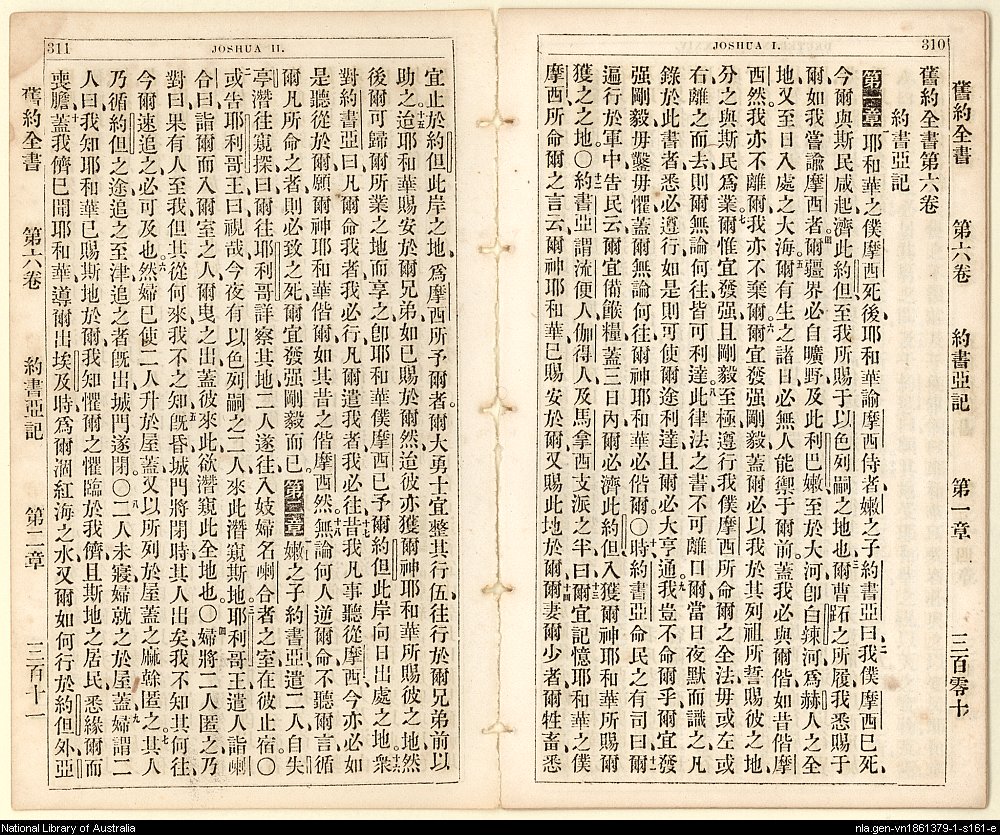 310
JOSHUA I.
舊約全書 第六卷 約書亞記 第一章 三百零十
舊約全書第六卷
約書亞記
第一章 耶和華之僕摩西死後、耶和華諭摩西侍者嫩之子約書亞曰、二我僕摩西已死、
今爾與斯民咸起濟此約但至我所賜于以色列嗣之地也、三爾曹跖之所履我悉賜于
爾、如我嘗諭摩西者、四爾疆界必自曠野及此利巴嫩至於大河卽白辣河、爲赫人之全
地、又至日入處之大海、五爾有生之諸日、必無人能禦于爾前、蓋我必與爾偕、如昔偕摩
西然、我亦不離爾、我亦不棄爾、六爾宜發强剛毅、蓋爾必以我於其列祖所誓賜彼之地、
分之與斯民爲業、七爾惟宜發强且剛毅至極、遵行我僕摩西所命爾之全法、毋或左或
右離之而去、則爾無論何往、皆可利達、八此律法之書不可離口、爾當日夜默而識之、凡
錄於此書者、悉必遵行、如是則可使爾途利達、且爾必大亨通、九我豈不命爾乎、爾宜發
强剛毅、毋鑿毋懼、蓋爾無論何往、爾神耶和華必偕爾〇十時約書亞命民之有司曰、十一爾
遍行於軍中、告民云、爾宜備餱糧、蓋三日內爾必濟此約但、入獲爾神耶和華所賜爾
獲之之地〇十二約書亞謂流便人伽得人及馬拿西支派之半曰、十三爾宜記憶耶和華之僕
摩西所命爾之言云、爾神耶和華已賜安於爾、又賜此地於爾、十四爾妻爾少者爾牲畜悉
311
JOSHUA II.
宜止於約但此岸之地、爲摩西所予爾者、爾大勇士宜整其行伍、往行於爾兄弟前以
助之、十五迨耶和華賜安於爾兄弟如已賜於爾然、迨彼亦獲爾神耶和華所賜彼之地、然
後爾可歸爾所業之地而享之、卽耶和華僕摩西已予爾、約但此岸向日出處之地、十六衆
對約書亞曰、凡爾命我者、我必行、凡爾遣我者、我必往、十七昔我凡事聽從摩西、今亦必如
是聽從於爾、願爾神耶和華偕爾、如其昔之偕摩西然、十八無論何人逆爾命、不聽爾言、循
爾凡所命之者、則必致之死、爾宜發强剛毅而已、第二章 嫩之子約書亞遣二人自失
亭潛往窺探、曰爾往耶利哥詳察其地、二人遂往入妓婦名喇合者之室、在彼止宿〇
二或告耶利哥王曰、視哉、今夜有以色列嗣之二人來此潛窺斯地、三耶利哥王遣人詣喇
合曰、詣爾而入爾室之人、爾曳之出、蓋彼來此、欲潛窺此全地也〇四婦將二人匿之、乃
對曰、果有人至我、但其從何來、我不之知、五旣昏、城門將閉時、其人出矣、我不知其何往、
今爾速追之、必可及也、六然婦已使二人升於屋蓋、又以所列於屋蓋之麻幹匿之、七其人
乃循約但之途追之至津、追之者旣出、城門遂閉、〇八二人未寢、婦就之於屋蓋、九婦謂二
人曰、我知耶和華已賜斯地於爾、我知懼爾之懼臨於我儕、且斯地之居民、悉緣爾而
喪膽、十蓋我儕已聞耶和華導爾出埃及時、爲爾涸紅海之水、又爾如何行於約但外、亞
舊約全書 第六卷 約書亞記 第二章 三百十一
National Library of Australia
nla.gen-vn1861379-1-s161-e